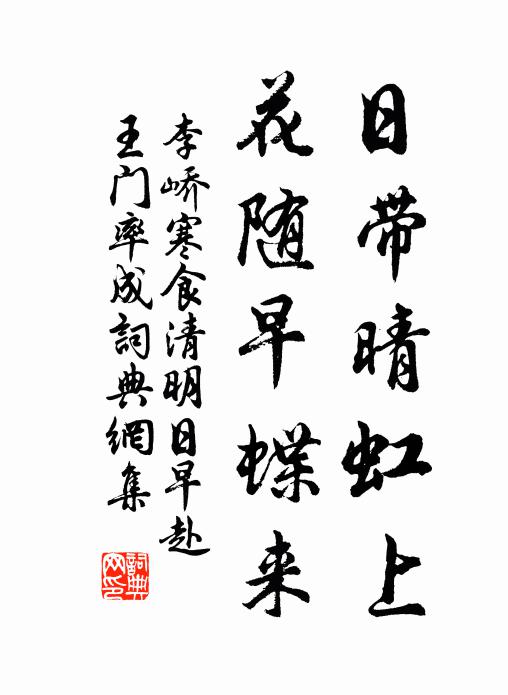 日带晴虹上
花随早蝶来
李峤寒食清明日早赴
王门率成詞典網集
詞典网印